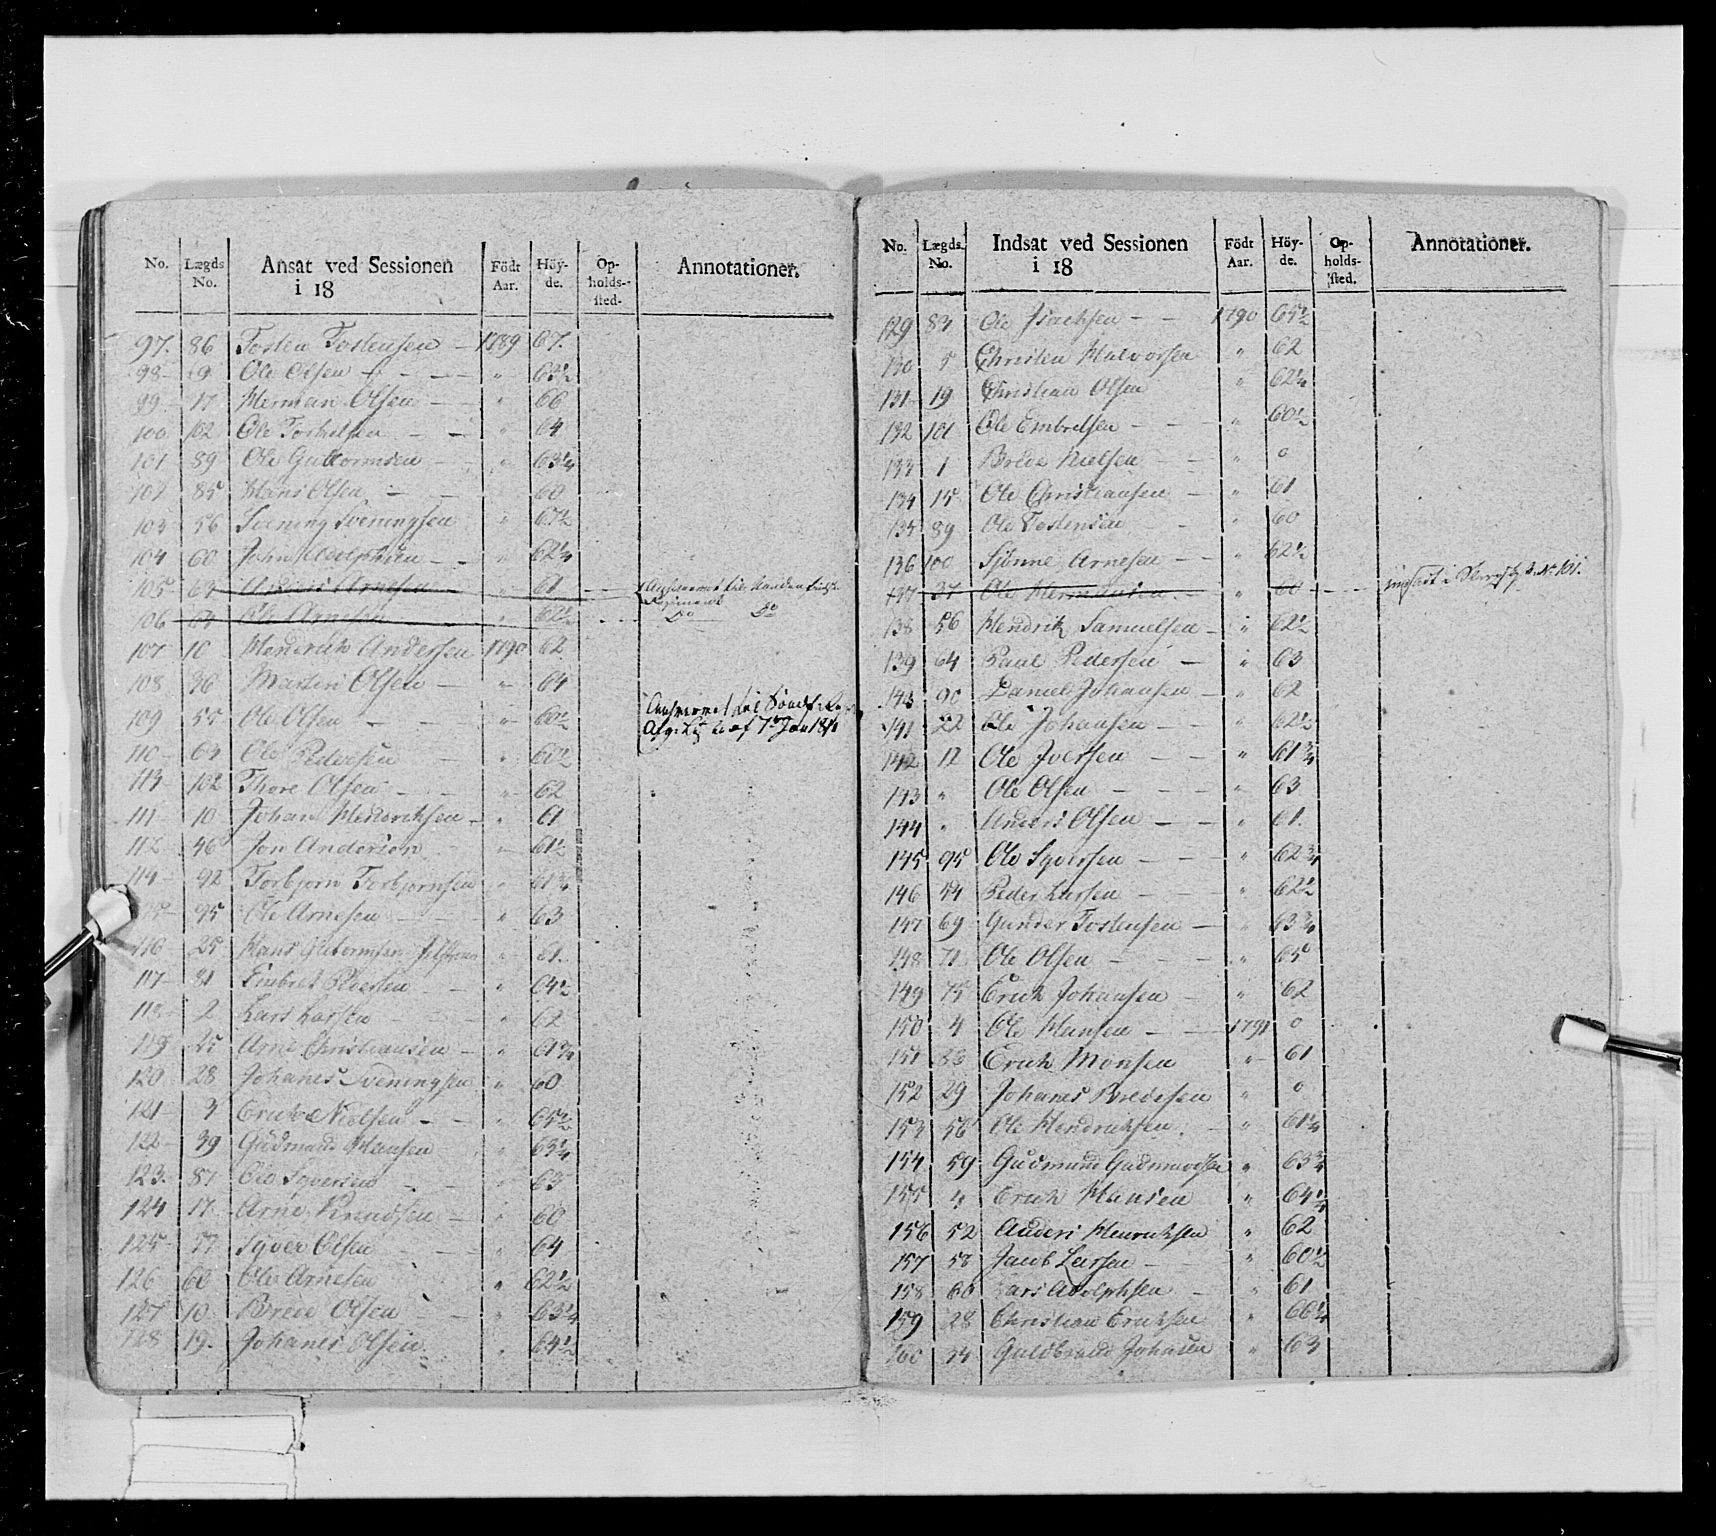 No. Lægds No. Ansat ved Sessionen i 18 Födt Aar. Höy-de. Op-holds-sted. Annotationer.
97. 86 Tosten Tostensen — 1789 67.
98 9 Ole Olsen — " 63½
99 17 Herman Olsen — " 66
100 102 Ole Torkelsen — " 64
101 89 Ole Guttormsen — " 63¼
102 85 Hans Olsen — 60
103 56 Svening Sveningsen " 67½
104 60 John Adolphsen — " 62¼
105 63 Arnesen 61 til Regiment
106 63 Ole Arnesen " 62½ Do Do
107 10 Hendrich Andersen 1790 62
108 36 Morten Olsen — " 64
109 55 Ole Olsen — " 60½ til af 7de Jan 1811
110 63 Ole Pedersen " 60½
113 102 Thore Olsen — " 62
111 10 Johan Hendriksen — " 61
112 46 Jon Andersen " 61½
114 92 Torbjørn Torbjørnsen " 61¾
115 95 Ole Arnesen — " 63
116 25 Hans Guttormsen " 61.
117 81 Embret Pedersen — " 64½
118 2 Lars Larsen — " 62
119 25 Arne Christiansen — " 61¾
120 28 Johanes Sveningsen " 60
121 3 Erich Nielsen — " 65½
122 39 Gudmund Hansen " 63¼
123. 81 Ole Syversen " 63
124 17 Arne Knudsen — " 60
125 77 Syver Olsen — " 64
126 60 Ole Arnesen " 62½
127 10 Brede Olsen — " 63¼
128 19. Johanes Olsen " 64½
No. Lægds. No. Indsat ved Sessionen i 18 Födt Aar. Höy-de. Op-holds-sted. Annotationer.
129 83 Ole Isachsen — 1790 65½
130 5 Christen Halvorsen " 62
131 19 Christian Olsen " 62¼
132 101 Ole Embretsen — " 60½
133 1 Brede Nielsen — " 0
134 15 Ole Christiansen — " 61
135 89 Ole Tostensen — " 60
136 100 Sjønne Arnesen — " 62½
137 37 Ole Hermansen " 60 indsat i No 101.
138 56 Hendrik Samuelsen — " 62½
139 64 Paul Pedersen — " 63
140 90 Daniel Johansen — " 62
141 22 Ole Johansen — " 62½
142 12 Ole Iversen — " 61¾
143 " Ole Olsen — " 63
144 " Anders Olsen — " 61.
145 95 Ole Syversen — " 62¾
146 54 Peder Larsen — " 62½
147 69 Gunder Tostensen — " 63¾
148 71 Ole Olsen — " 65
149 75 Erich Johansen — " 62
150 4 Ole Hansen — 1791 0
151 86 Erich Monsen " 61
152 29 Johanes Bredesen " 0
153 56 Ole Hendriksen — " 61¼
154 59 Gudmund Gudmundsen " 63¾
155 4 Erich Hansen " 64¼
156 52 Anders Henrichsen " 62
157 58 Jacob Larsen — " 60½
158 60 Lars Adolphsen — " 61
159 28 Christian Erichsen " 66¼
160 34 Guldbrand Johnsen " 63